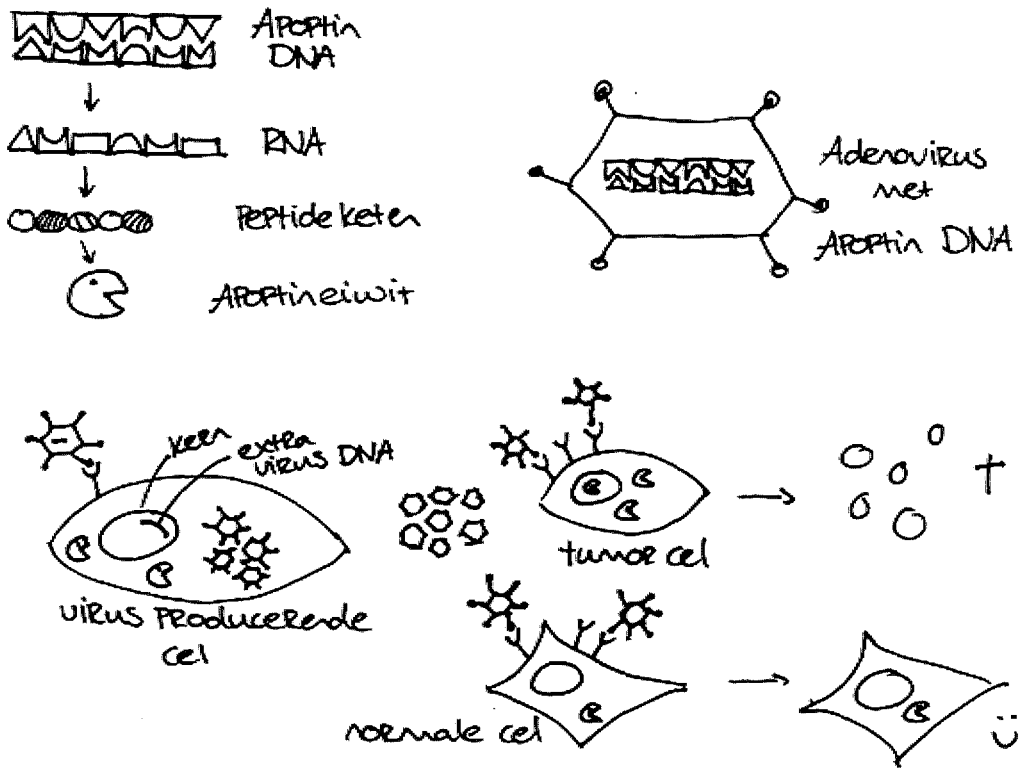 Apoptin
DNA
RNA
Peptideketen
Apoptineiwit
Adenovirus
met
Apoptin DNA
kern
extra
virus DNA
virus producerende
cel
tumor cel
normale cel